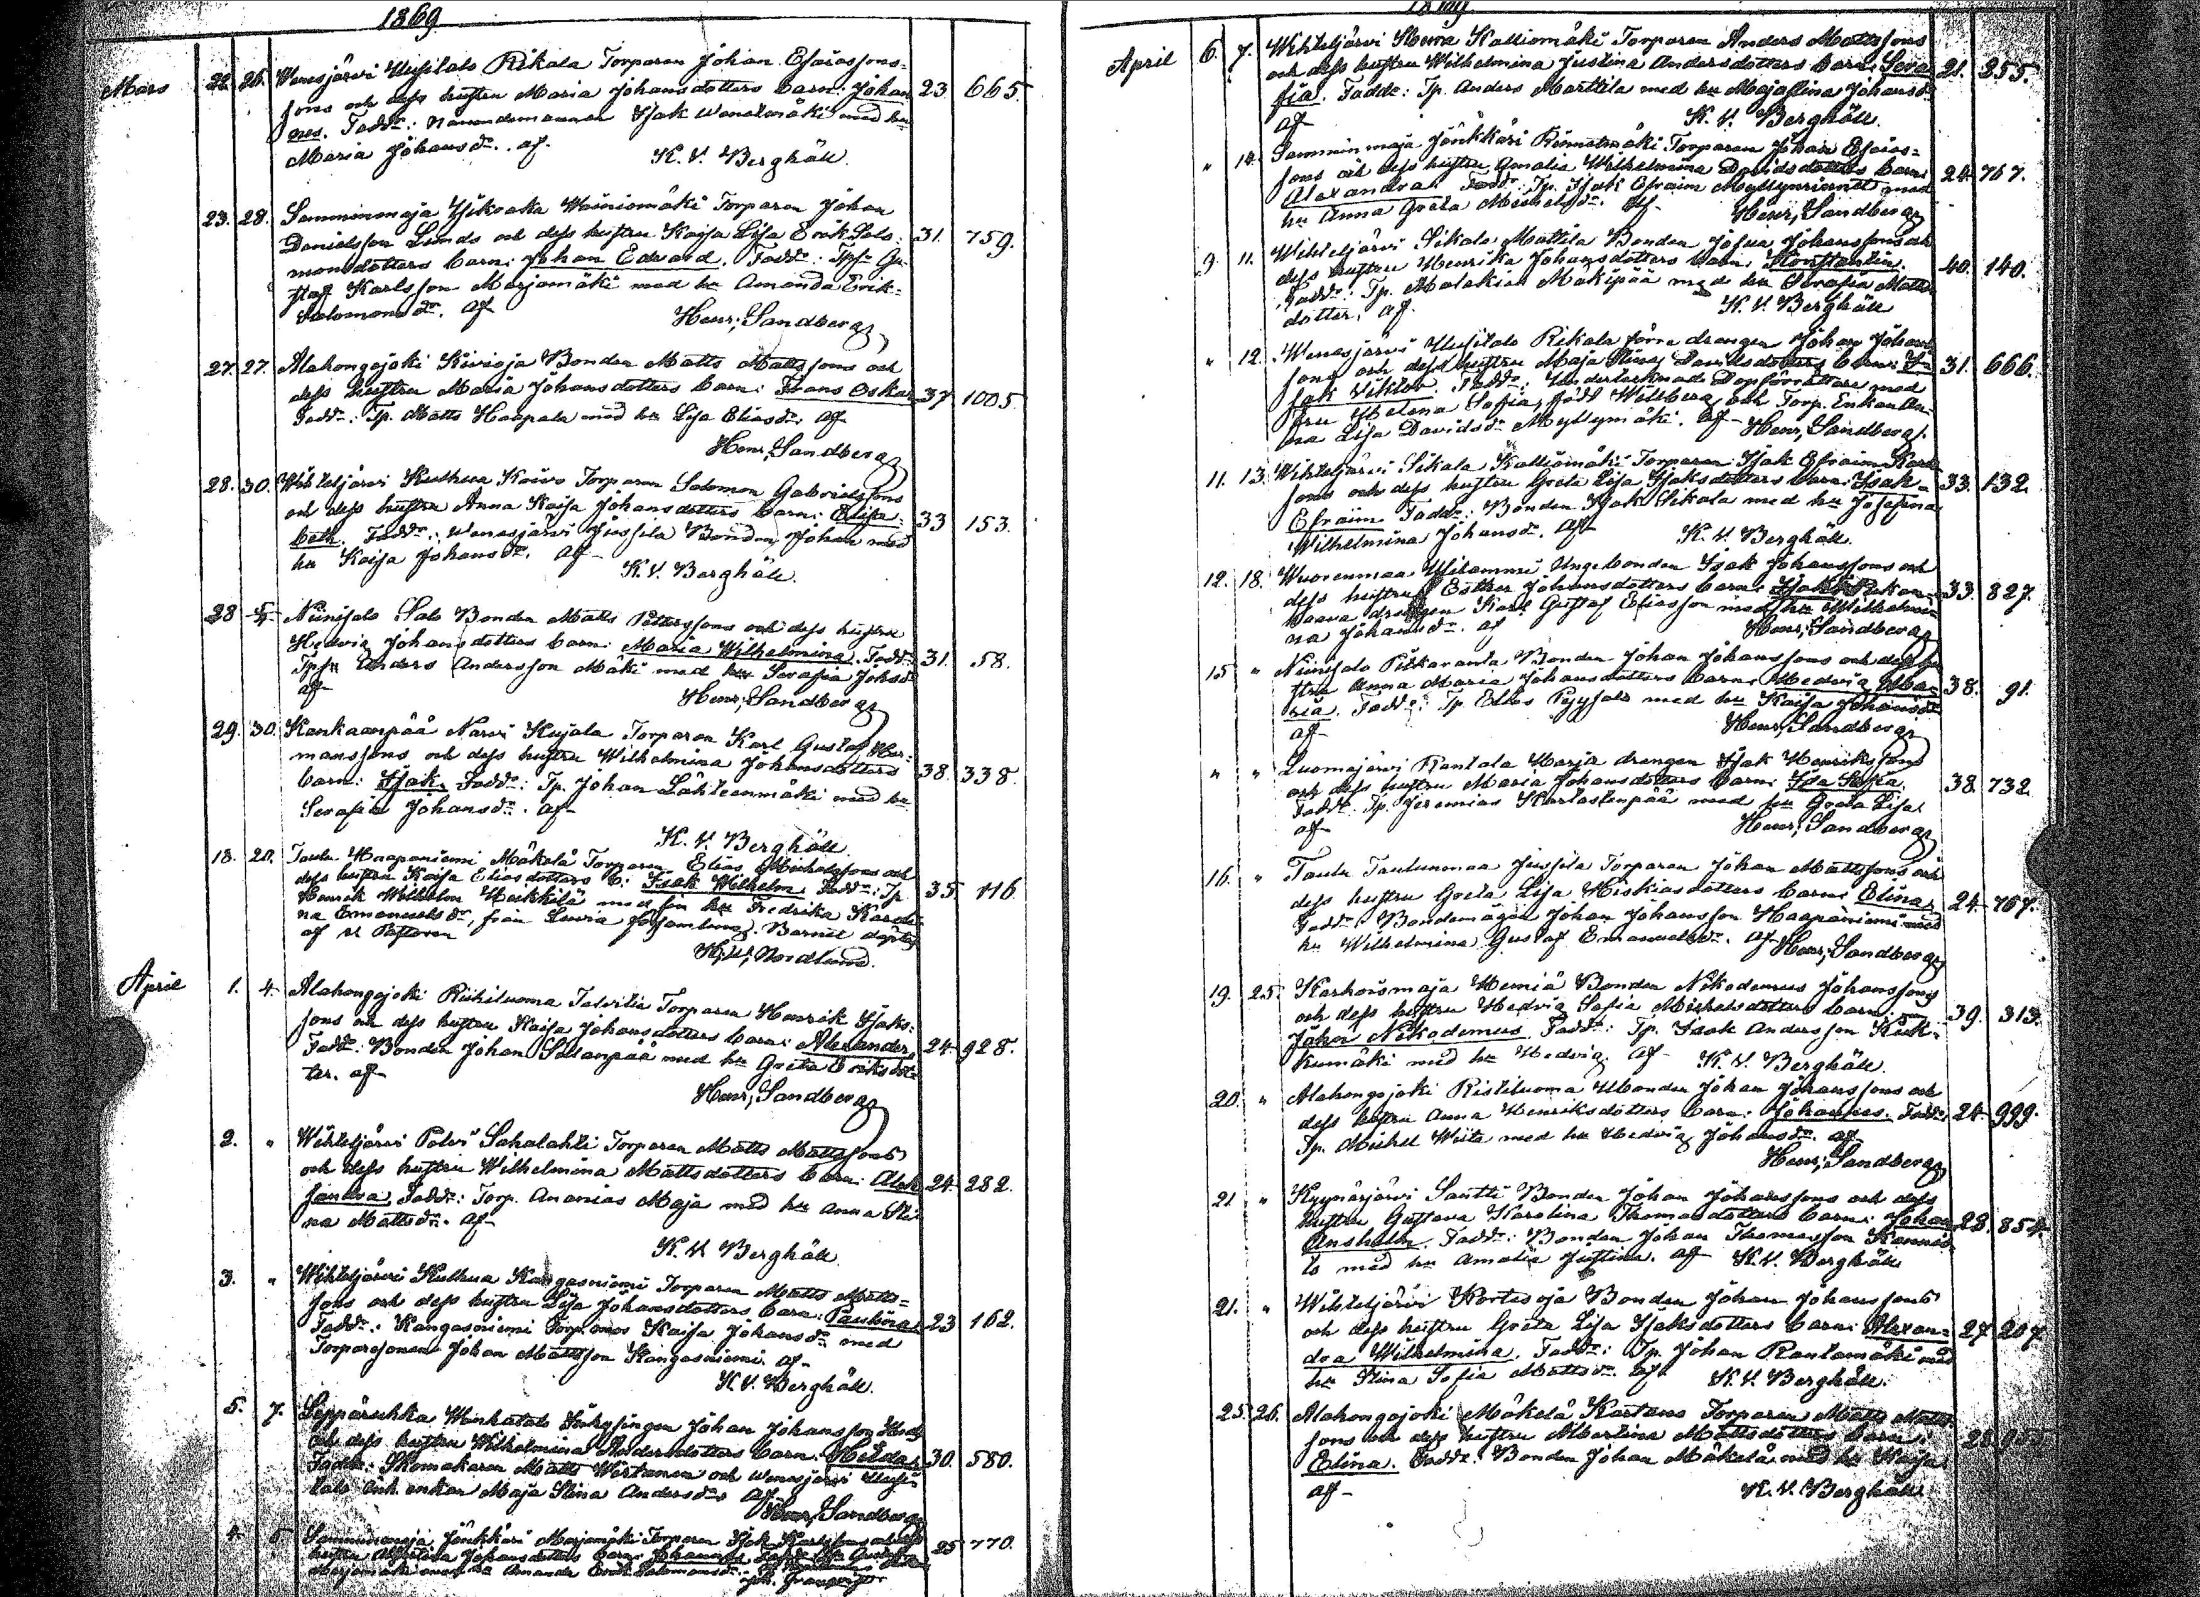 1869
Mars 22. 26. Wenesjärvi Uusitalo Rikala Torparen Johan Esaiasson-
sons och dess hustru Maria Johansdotters barn: Johan 23 665.
nes. Fadd: Nämndemannen Isak Wanelmäki med hu
Maria Johansdr. af
K. V. Berghäll.
23. 28. Samminmaja Ylikoska Wainiomäki Torparen Johan
Danielsson Lunds och dess hustru Kaisa Lisa Erik Salo- 31. 759.
monsdotters barn: Johan Edvard. Fadd: Tpsn Gu-
staf Karlsson Marjamäki med hu Amanda Erik-
Salomonsdr. af
Henr, Sandberg
27. 27. Alahongojoki Kivioja Bonden Matts Mattssons och
dess hustru Maria Johansdotters barn: Frans Oskar 37 1005
Fadd: Tp. Matts Haapala med hu Lisa Eliasdr. af
Henr, Sandberg
28. 30. Wihteljärvi Kulhua Koivo Torparen Salomon Gabrielssons
och dess hustru Anna Kaisa Johansdotters barn: Elisa- 33 153.
beth. Fadd: Wenesjärvi Jussila Bonden Johan med
hu Kaisa Johansdr. af
K. V. Berghäll.
28 5/4 Niinisalo Salo Bonden Matts Petterssons och dess hustru
Hedvig Johansdotters barn: Maria Wilhelmina. Fadd: 31. 58.
Tpsn Anders Andersson Mäki med hu Serafia Johsdr
af
Henr, Sandberg
29. 30. Kankaanpää Narvi Kujala Torparen Karl Gustaf Her-
manssons och dess hustru Wilhelmina Johansdotters 38. 338.
barn: Isak. Fadd: Tp. Johan Lähteenmäki med hu
Serafia Johansdr. af
K. V. Berghäll.
18. 20. Taulu Haapaniemi Mäkelä Torparen Elias Michelssons och
dess hustru Kaisa Eliasdotters b: Isak Wilhelm. Fadd: Tp 35. 116.
Henrik Wilhelm Heikkilä med sin hu Fredrika Karoli-
na Emanuelsdr, från Lavia församling. Barnet döptes
af Pastoren
Nordlund.
April 1. 4. Alahongojoki Riihiluoma Talvitie Torparen Henrik Isaks-
sons och dess hustru Kaisa Johansdotters barn: Alexander. 24. 928.
Fadd: Bonden Johan Sillanpää med hu Greta Eriksdot-
ter. af
Henr, Sandberg
2. " Wihteljärvi Palvi Sahalahti Torparen Matts Mattssons
och dess hustru Wilhelmina Mattsdotters barn: Alek 24. 282.
sandra. Fadd: Torp. Ananias Maja med hu Anna Sti-
na Mattsdr. af
K. V. Berghäll
3. " Wihteljärvi Kulhua Kangasniemi Torparen Matts Matts-
sons och dess hustru Lisa Johansdotters barn: Paulina. 23 162.
Fadd: Kangasniemi Torp. mor Kaisa Johansdr med
Torparsonen Johan Mattsson Kangasniemi. af
K. V. Berghäll.
5. 7. Leppäruhka Johan Johansson
och dess hustru Wilhelmina Andersdotters barn: Hilda. 30. 580.
Fadd: Skomakaren Matts Wirtanen och Wenesjärvi Uusi-
talo enkan Maja Stina Andersdr. af
Henr, Sandberg
4. 5 Samminmaja Jönkkäri Marjamäki Torparen Isak Karlssons och dess 25 770.
hustru Johansdotters barn: Johannes.
Marjamäki med hu Amanda Erik Salomonsdr.
1869.
April 6. 7. Wihteljärvi Kalliomäki Torparen Anders Mattssons
och dess hustru Wilhelmina Justina Andersdotters barn: Sera 21. 255.
fia. Fadd: Tp. Anders Marttila med hu Majastina Johansdr.
af
K. V. Berghäll.
" 14. Samminmaja Jönkkäri Rinnetmäki Torparen Johan Esaias-
sons och dess hustru Amalia Wilhelmina Davidsdotters barn: 24. 767.
Alexandra. Fadd: Tp. Isak Efraim Myllyniemi med
hu Anna Greta Michelsdr. af
Henr, Sandberg
9. 11. Wihteljärvi Sikala Mattila Bonden Josua Johanssons och
dess hustru Henrika Johansdotters barn: Konstantin. 40. 140.
Fadd: Tp. Malakias Mäkipää med hu Serafia Matts
dotter. af
K. V. Berghäll
" 12. Wenesjärvi Uusitalo Rikala förra drängen Johan Johans
sons och dess hustru Maja Stina Davidsdotters barn: I- 31. 666.
sak Viktor. Fadd: Undertecknade Dopförrättare med
fru Helena Sofia, född Willberg och Torp. Enkan An-
na Lisa Davidsdr Myllymäki. af Henr, Sandberg.
11. 13. Wihteljärvi Sikala Kalliomäki Torparen Isak Efraim Karls
sons och dess hustru Greta Lisa Isaksdotters barn: Isak 33. 132.
Efraim. Fadd: Bonden Isak Sikala med hu Josefina
Wilhelmina Johansdr. af
K. V. Berghäll.
12. 18. Wuorenmaa Ylitammi Ungebonden Isak Johanssons och
dess hustru Esther Johansdotters barn: Isak 33. 827.
drängen Karl Gustaf Eliasson med hu Wilhelmi
na Johansdr. af
Henr, Sandberg
15 " Niinisalo Pitkäranta Bonden Johan Johanssons och dess hu
stru Anna Maria Johansdotters barn: Hedvig Ma- 38. 91.
ria. Fadd: Tp. Elias Pyysalo med hu Kaisa Johansdr
af
Henr, Sandberg
" " Luomajärvi Rantala Harja drängen Isak Henrikssons
och dess hustru Maria Johansdotters barn: Ida Sofia. 38. 732.
Fadd: Tp. Jeremias Kartastenpää med hu Greta Lisa
af
Henr, Sandberg
16. " Taulu Taulunmaa Jussila Torparen Johan Mattssons och
dess hustru Greta Lisa Hiskiasdotters barn: Elina. 24. 767.
Fadd: Bondemågen Johan Johansson Haapaniemi med
hu Wilhelmina Gustaf Emanuelsdr. af Henr, Sandberg
19. 25. Karhoismaja Heiniä Bonden Nikodemus Johanssons
och dess hustru Hedvig Sofia Michelsdotters barn: 39. 313.
Johan Nikodemus. Fadd: Tp. Isak Andersson Kuk-
kumäki med hu Hedvig. af K. V. Berghäll.
20. " Alahongojoki Ristiluoma Bonden Johan Johanssons och
dess hustru Anna Henriksdotters barn: Johannes. Fadd: 24. 999.
Tp. Michel Wiita med hu Hedvig Johansdr. af
Henr, Sandberg
21. " Kyynärjärvi Santti Bonden Johan Johanssons och dess
hustru Gustava Karolina Thomasdotters barn: Johan 28. 854.
Anshelm. Fadd: Bonden Johan Thomasson Kannis-
to med hu Amalia Justina. af K. V. Berghäll
21. " Wihteljärvi Kortesoja Bonden Johan Johanssons
och dess hustru Greta Lisa Isaksdotters barn: Alexan- 27. 207.
dra Wilhelmina. Fadd: Tp. Johan Rantamäki med
hu Stina Sofia Mattsdr. af K. V. Berghäll.
25. 26. Alahongojoki Mäkelä Kartano Torparen Matts Matts-
sons och dess hustru Martina Mattsdotters barn:
Elina. Fadd: Bonden Johan Mäkelä med hu Kaisa
af
K. V. Berghäll